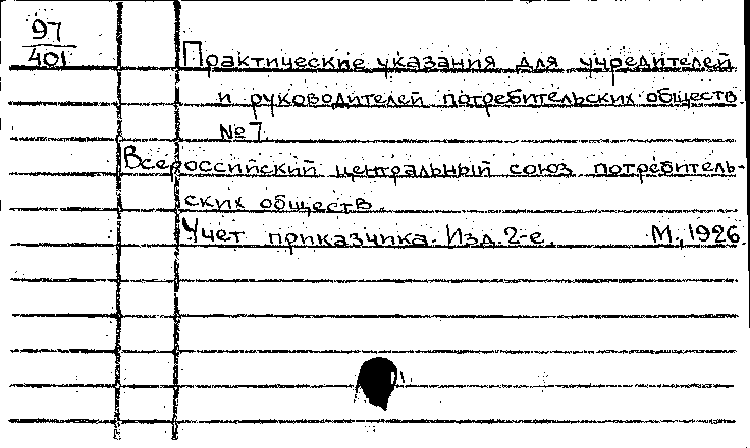 97
401
Практические указания для учредителей
и руководителей потребительских обществ.
№7.
Всероссийский центральный союз потребитель-
ских обществ.
Учет приказчика. Изд. 2-е. М., 1926